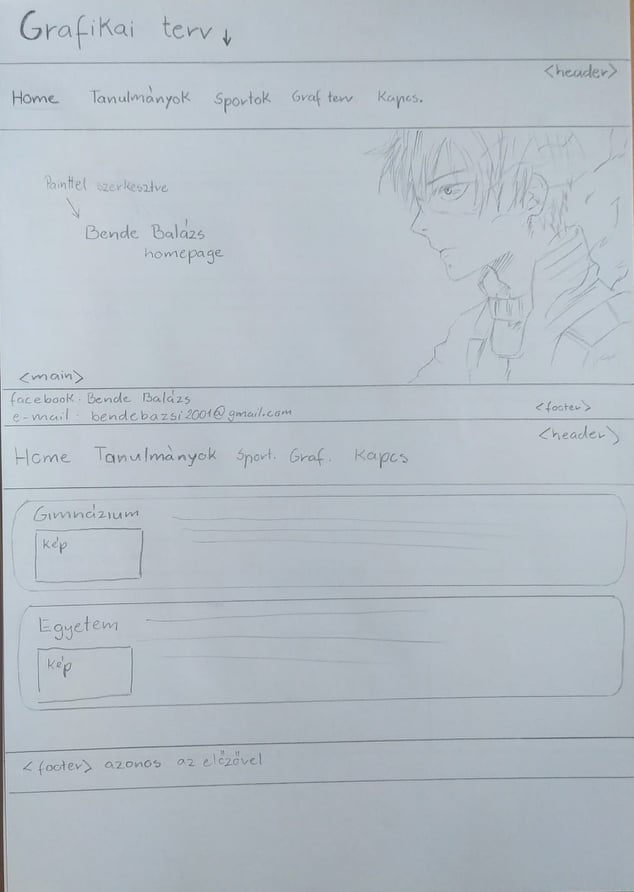 Grafikai terv ↓
<header>
Home Tanulmányok Sportok Graf terv Kapcs.
Painttel szerkesztve
Bende Balázs
homepage
<main>
facebook: Bende Balázs
e-mail: bendebazsi2001@gmail.com
<footer>
<header>
Home Tanulmányok Sport. Graf. Kapcs
Gimnázium
Kép
Egyetem
Kép
<footer> azonos az előzővel